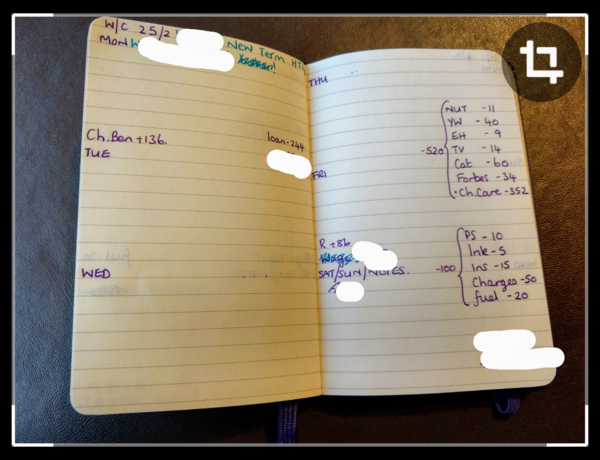 W/C 25/2
New Term
MON
Ch.Ben +136.
loan -244
TUE
WED
THU
-520
NUT -11
YW -40
EH -9
TV -14
Cat -60
Forbes -34
Ch.Care -352
FRI
R +86
SAT/SUN/NOTES.
-100
PS -10
Ink -5
Ins -15
Charges -50
fuel -20